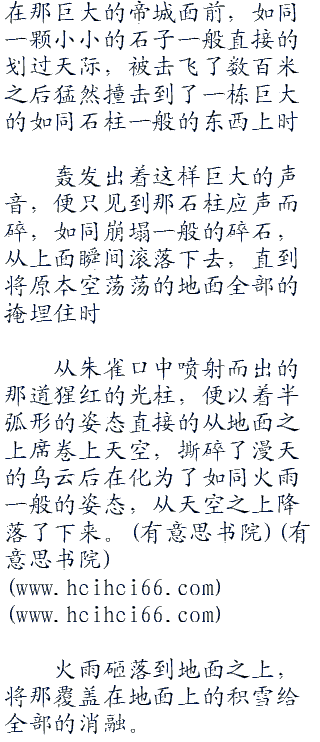 在那巨大的帝城面前，如同
一颗小小的石子一般直接的
划过天际，被击飞了数百米
之后猛然撞击到了一栋巨大
的如同石柱一般的东西上时
轰发出着这样巨大的声
音，便只见到那石柱应声而
碎，如同崩塌一般的碎石，
从上面瞬间滚落下去，直到
将原本空荡荡的地面全部的
掩埋住时
从朱雀口中喷射而出的
那道猩红的光柱，便以着半
弧形的姿态直接的从地面之
上席卷上天空，撕碎了漫天
的乌云后在化为了如同火雨
一般的姿态，从天空之上降
落了下来。(有意思书院)(有
意思书院)
(www.hcihci66.com)
(www.hcihci66.com)
火雨砸落到地面之上，
将那覆盖在地面上的积雪给
全部的消融。